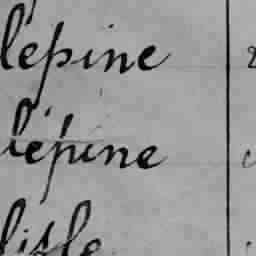 lépine
lépine
lisle